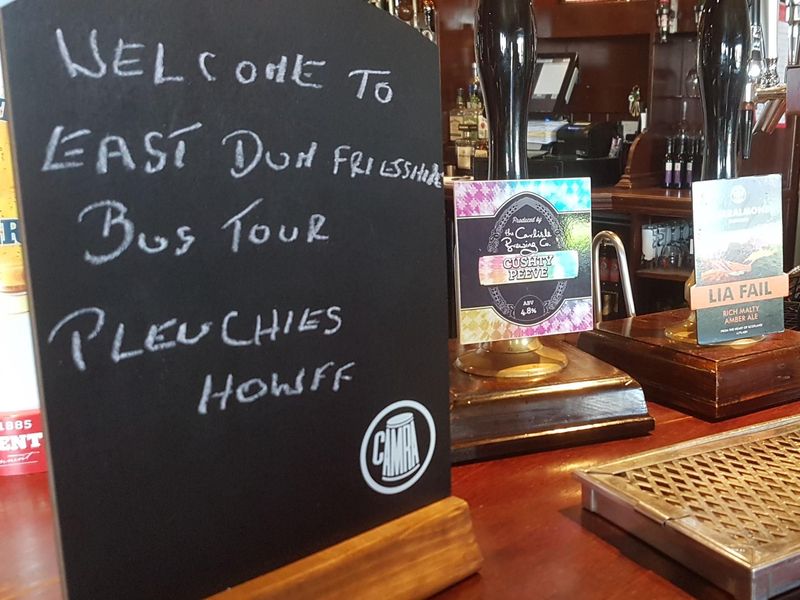 WELCOME TO
EAST DUMFRIESSHIRE
BUS TOUR
PLEUCHIES
HOWFF
CAMRA
Produced by
the Carlisle
Brewing Co.
CUSHTY
PEEVE
ABV
4.8%
LIA FAIL
RICH MALTY
AMBER ALE
FROM THE HEART OF SCOTLAND
1885